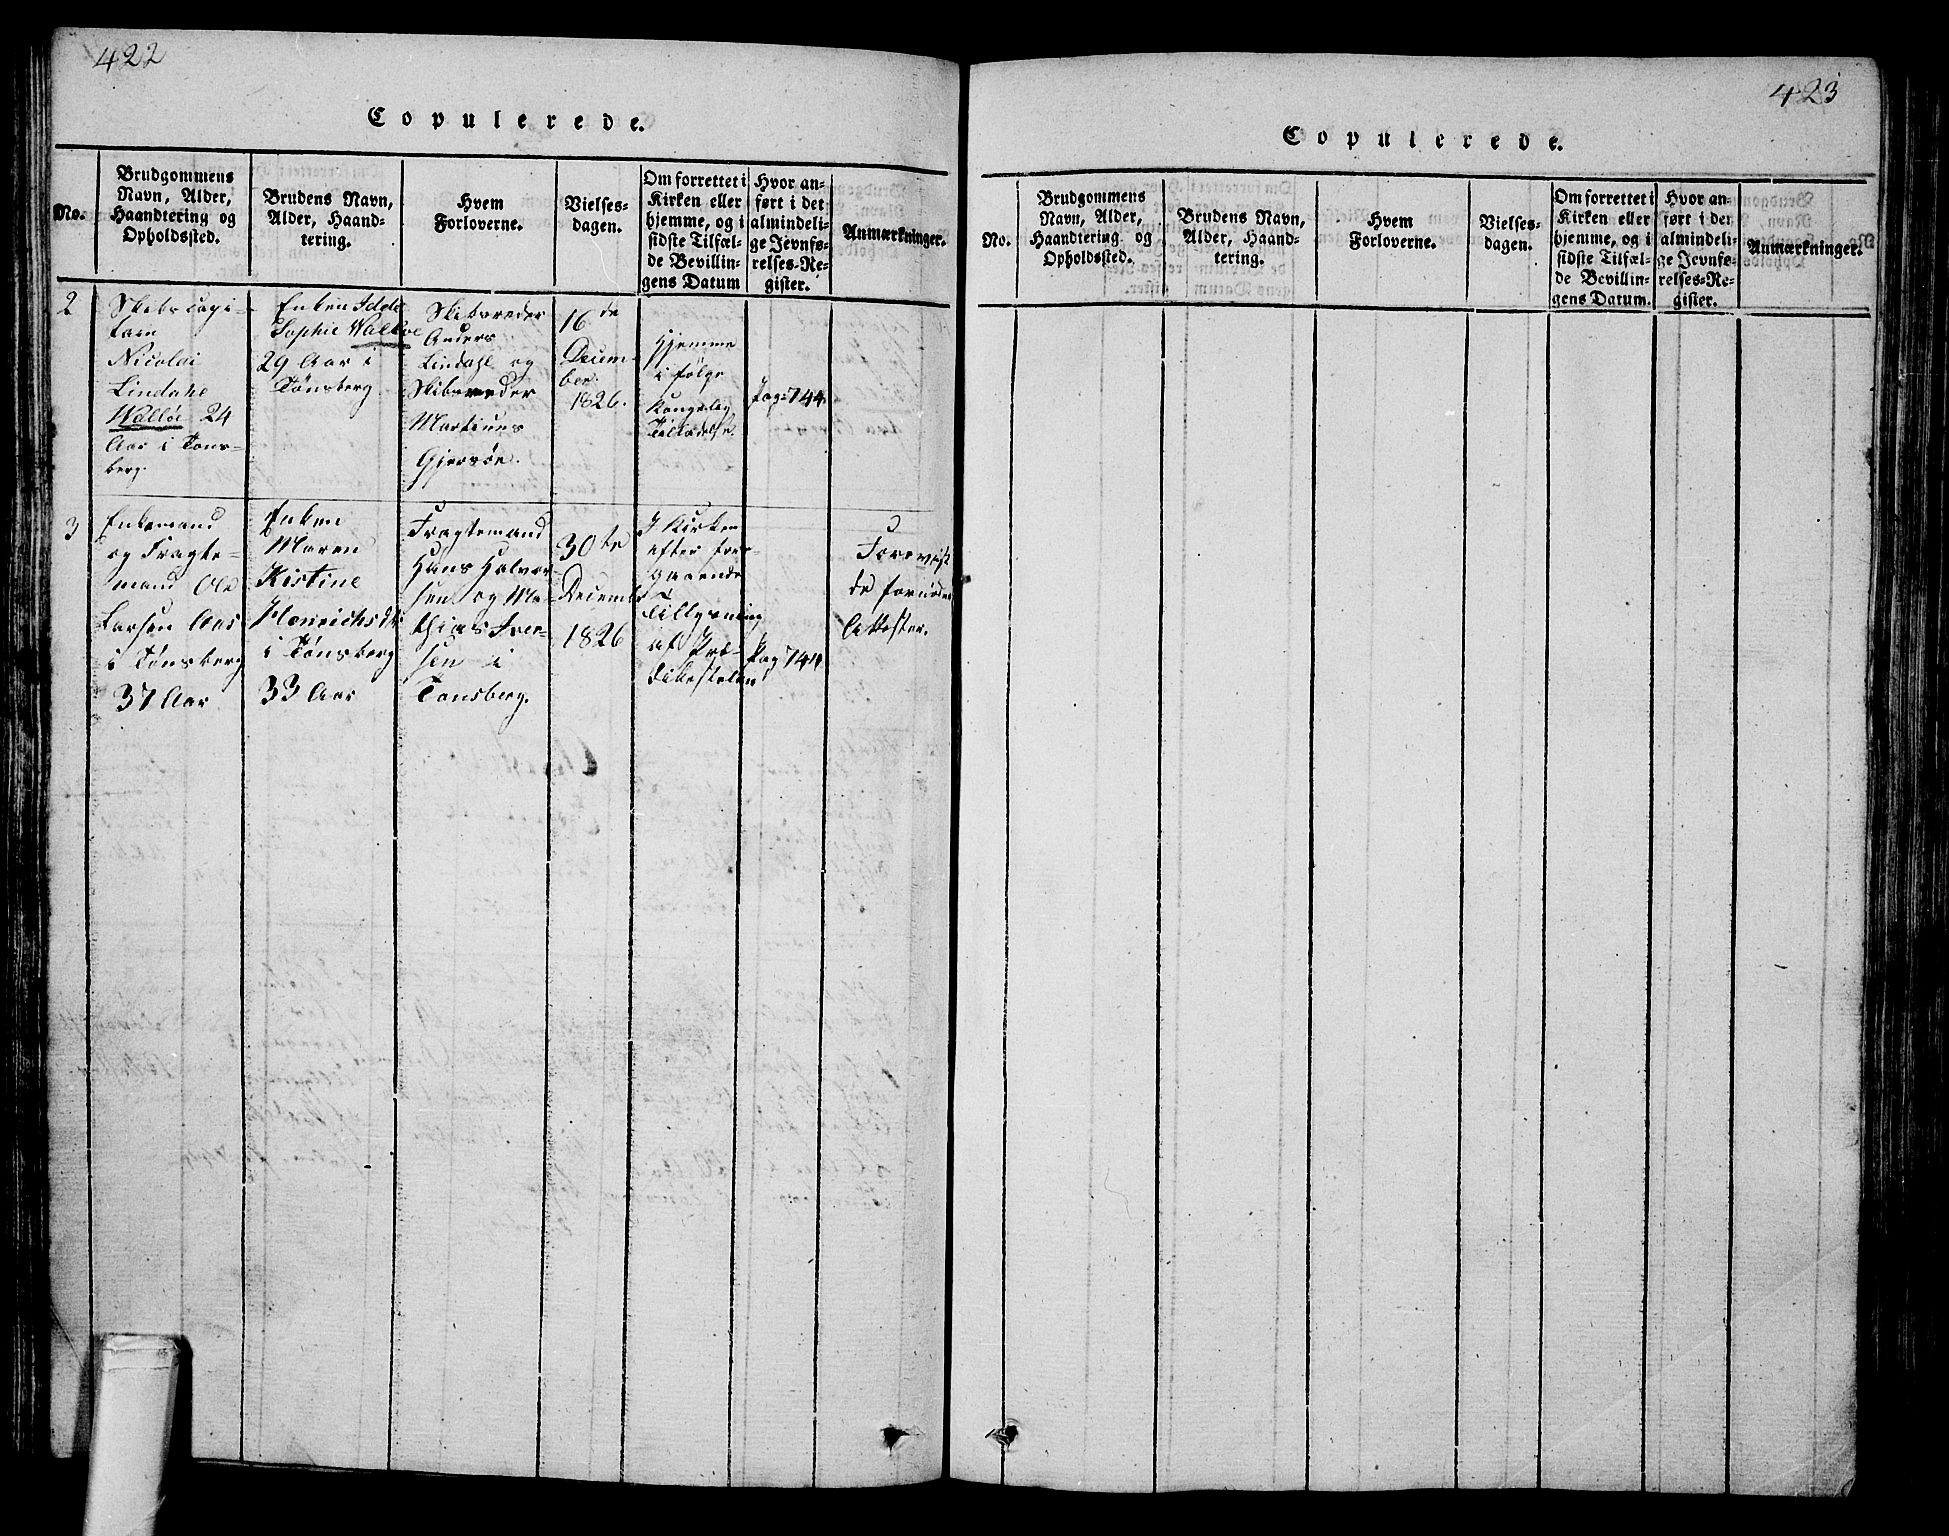 422
Copulerede.
No.
Brudgommens
Navn, Alder,
Haandtering og
Opholdssted.
Brudens Navn,
Alder, Haand-
tering.
Hvem
Forloverne.
Vielses-
dagen.
Om forrettet i
Kirken eller
hjemme, og i
sidste Tilfæl-
de Bevillin-
gens Datum
Hvor an-
ført i det
almindeli-
ge Jevnfø-
relses-Re-
gister.
Anmærkninger.
2
Skibscapi-
tain
Nicolai
Lindahl
Walløe 24
Aar i Tøns-
berg.
Enken
Sophie Walløe
29 Aar i
Tønsberg
Skibsreder
Anders
Lindahl og
Skibsreder
Martinus
Gjersøe.
16de
Decem-
ber.
1826.
Hjemme
i følge
Kongelig
Tilladelse.
Pag: 744.
3
Enkemand
og Fragte-
mand Ole
Larsen Aas
i Tønsberg
37 Aar
Enken
Maren
Kistine
Henrichsdtr
i Tønsberg
33 Aar
Fragtemand
Hans Halvor-
sen og Ma-
thias Iver-
sen i
Tønsberg.
30te
December
1826
I Kirken
efter fore-
gaaende
Tillysning
af Præ-
dikestolen
Pag: 744
Foreviist
de fornødne
Attester.
423
Copulerede.
No.
Brudgommens
Navn, Alder,
Haandtering og
Opholdssted.
Brudens Navn,
Alder, Haand-
tering.
Hvem
Forloverne.
Vielses-
dagen.
Om forrettet i
Kirken eller
hjemme, og i
sidste Tilfæl-
de Bevillin-
gens Datum.
Hvor an-
ført i det
almindeli-
ge Jevnfø-
relses-Re-
gister.
Anmærkninger.